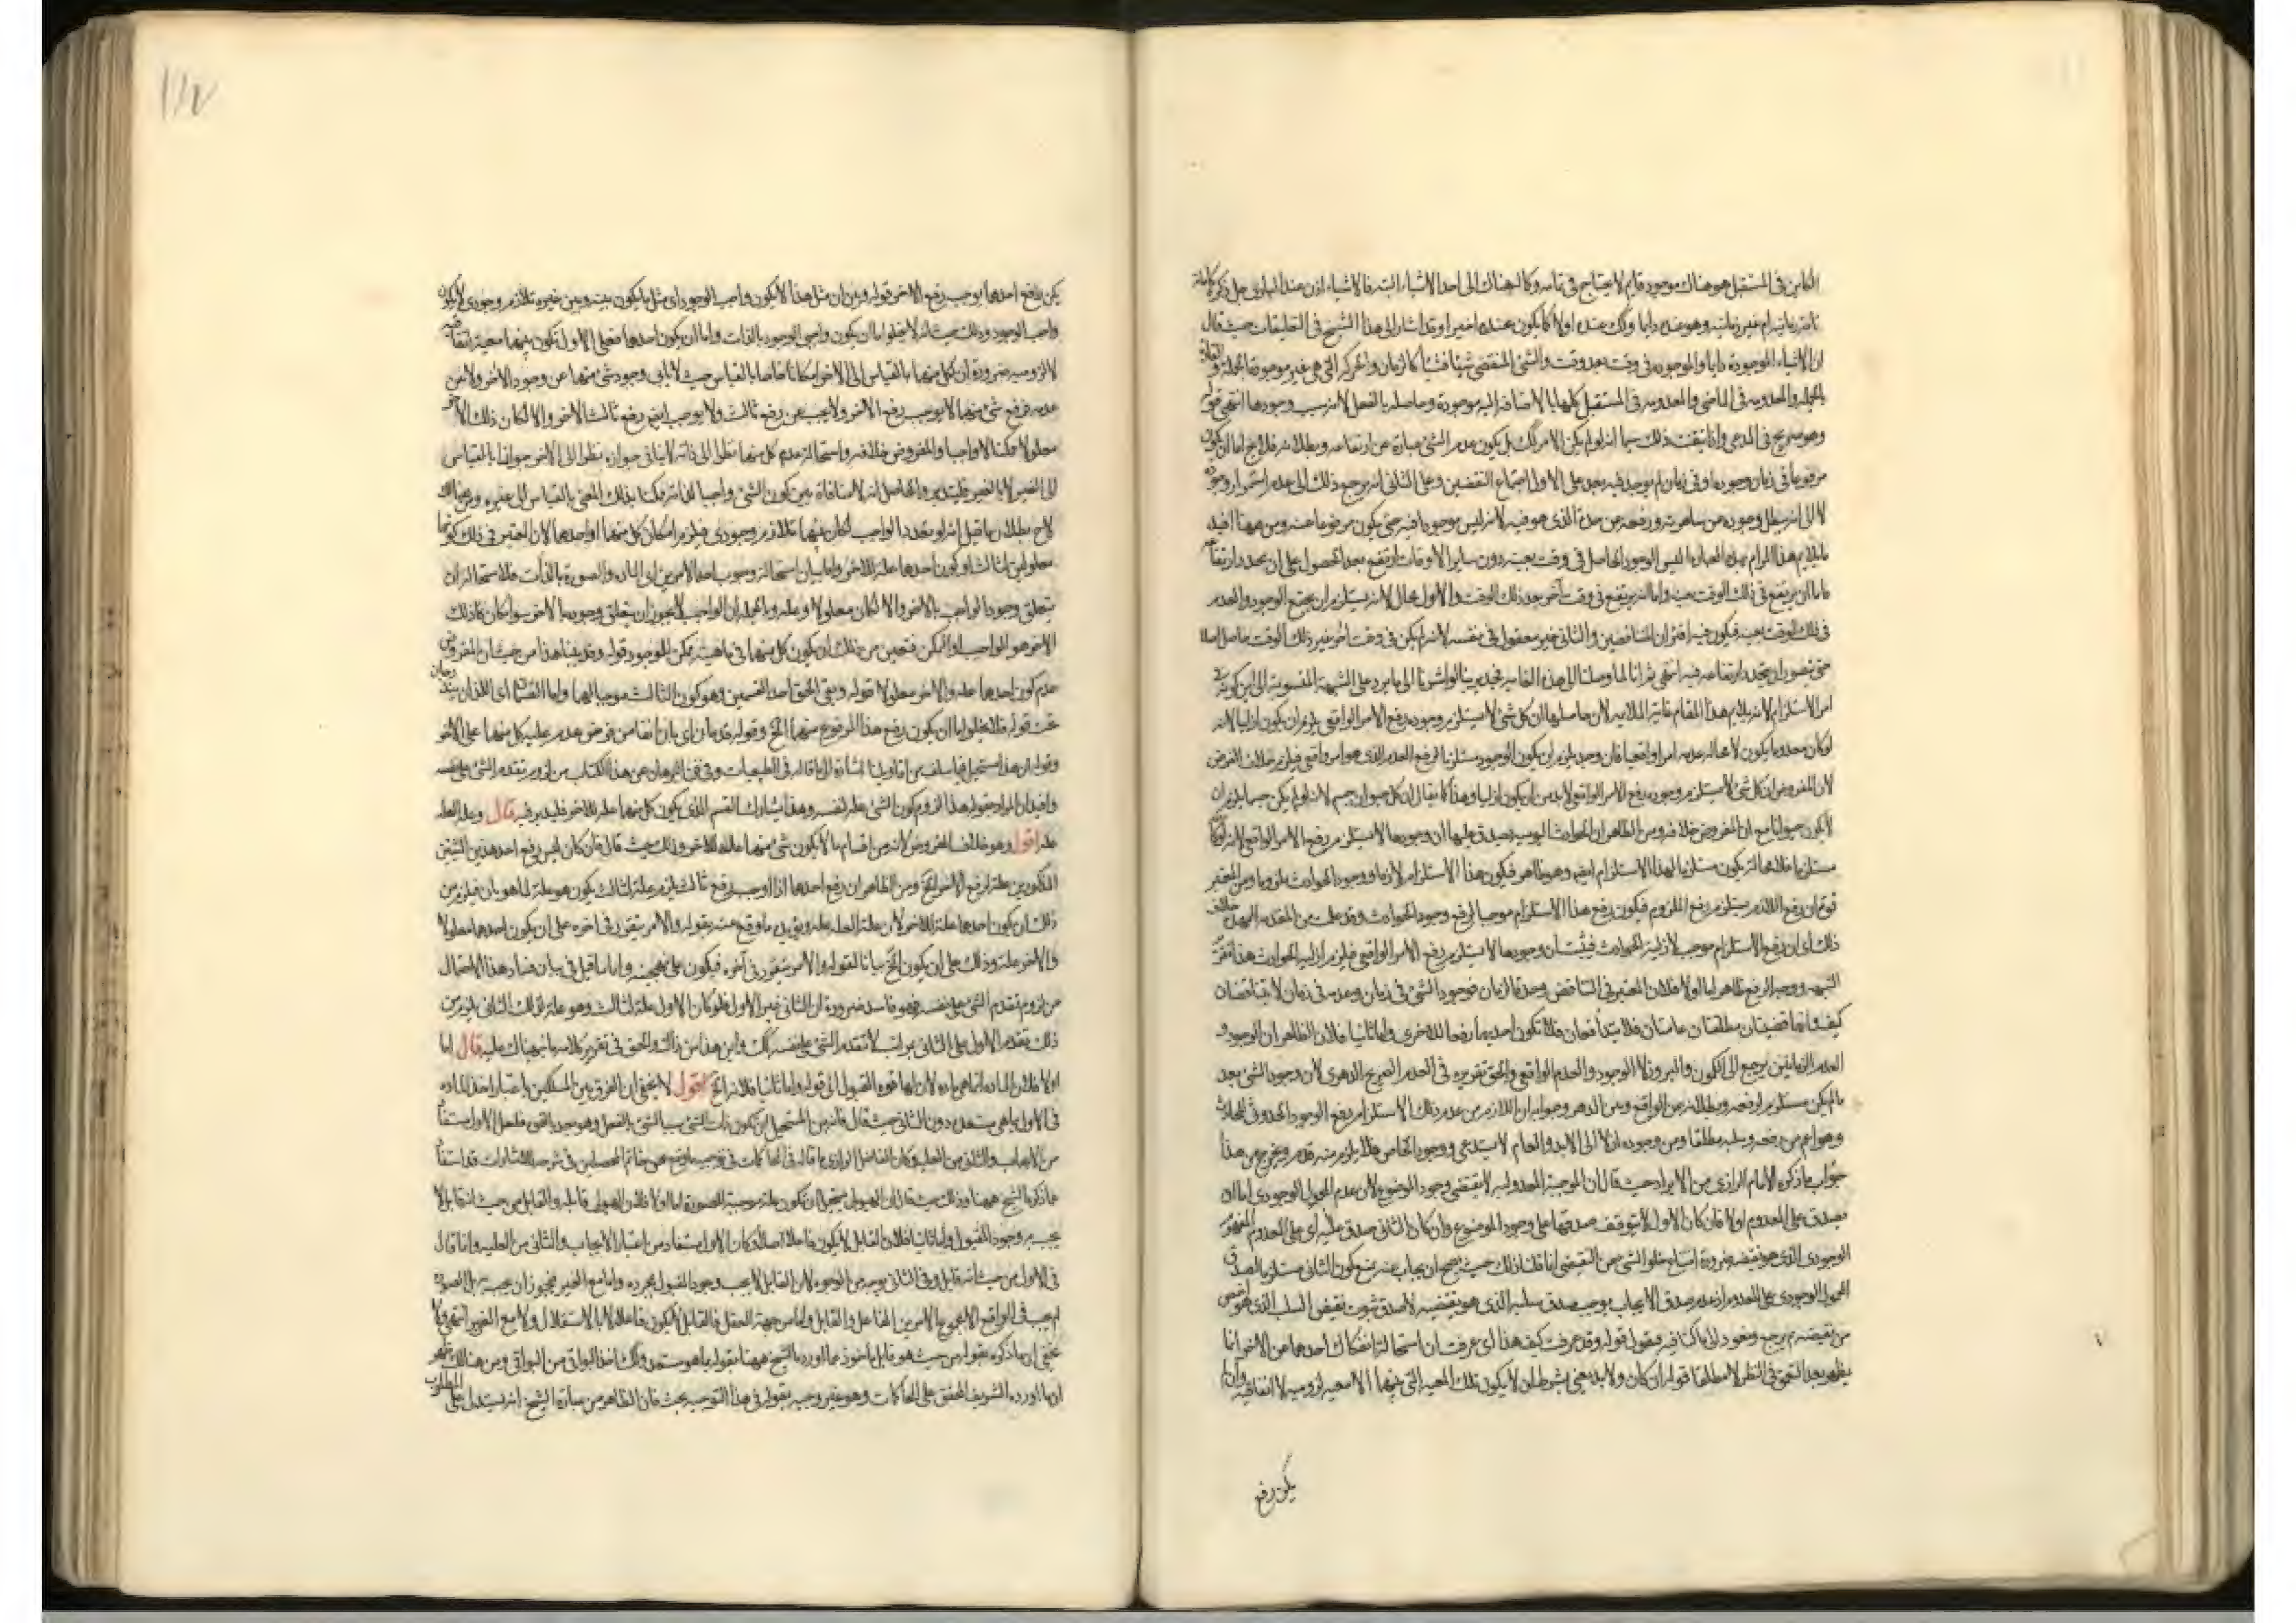 الكاين في المستقبل هو هناك موجود قايم لا يحتاج في تمامه وكاله هناك الى احد الاشياء البتة فالاشياء اذن عند الباري جل ذكره كاملة
تامة زمانية ام غير زمانية وهو عنده دايما وكذلك عنده اولا كما يكون عنده اخيرا وقد اشار الى هذا الشيخ في التعليقات حيث قال
ان الاشياء الموجودة دايما والموجودة في وقت بعد وقت والشئ المنقضي شيئا فشيئا كالزمان والحركة التي هي غير موجودة الجملة
والمعدومة في الماضي والمعدومة في المستقبل كلها بالاضافة اليه موجودة وحاصلة بالفعل لانه سبب وجودها انتهى قوله
وهو صريح في المدعى وانا تيقنت ذلك بما انه لو لم يكن الامر كذلك بل يكون عدم الشئ عبارة عن ارتفاعه وبطلانه فلا يخ اما ان يكون
مرفوعا في زمان وجوده او في زمان لم يوجد فيه بعد على الاول اجتماع النقيضين وعلى الثاني انه يرجع ذلك الى عدم استمرار وجوده
لا الى انه بطل وجوده من ساهرته ورفعه من حده الذي هو فيه لانه ليس موجودا فيه حتى يكون مرفوعا عنه ومن ههنا افيد
ما يلايم هذا المرام بهذه العبارة ليس الوجود الحاصل في وقت بعينه دون ساير الاوقات ارتفع بعد الحصول على ان يتجدد ارتفاعه
فاما ان يرتفع في ذلك الوقت بعينه واما انه يرتفع في وقت آخر بعد ذلك الوقت والاول محال لانه يستلزم ان يجتمع الوجود والعدم
في ذلك الوقت بعينه فيكون فيه اقتران المتناقضين والثاني غير معقول في نفسه لانه لم يكن في وقت آخر غير ذلك الوقت حاصل اصلا
حتى يتصور ان يتجدد ارتفاعه فيه انتهى ثم انا لما وصلنا الى هذه الغاية فحيرينا لو اشرنا الى ما يرد على الشبهة المنسوبة الى ابن كمونة
امر الاستلزام لانه يلايم هذا المقام غاية الملايمة لان حاصلها ان كل شئ لا يستلزم وجوده رفع الامر الواقعي يلزم ان يكون ازليا لانه
لو كان معدوما يكون لا محالة عدمه امرا واقعيا فان وجد يلزم ان يكون الوجود مستلزما لرفع العدم الذي هو امر واقعي فيلزم خلاف الفرض
لان المفروض ان كل شئ لا يستلزم وجوده رفع الامر الواقعي لا بد من ان يكون ازليا وهذا كما يقال ان كل حيوان جسم لانه لو لم يكن جسما يلزم ان
لا يكون حيوانا مع ان المفروض خلافه ومن الظاهر ان الحوادث اليومية يصدق عليها ان وجودها لا يستلزم رفع الامر الواقعي لانه لو كان
مستلزما فلا محالة يكون مستلزما لهذا الاستلزام ايضا وهو ظاهر فيكون هذا الاستلزام لازما ووجود الحوادث ملزوما ومن المعتبر
قوم ان رفع اللازم يستلزم رفع الملزوم فيكون رفع هذا الاستلزام موجبا لرفع وجود الحوادث وقد علمت من المقدمة الممهدة خلاف
ذلك اي ان رفع الاستلزام موجب لازلية الحوادث فيثبت ان وجودها لا يستلزم رفع الامر الواقعي فيلزم ازلية الحوادث هذا تقرير
الشبهة ووجه الرفع ظاهر اما اولا فلان المعتبر في التناقض وحدة الزمان فوجود الشئ في زمان وعدمه في زمان لا يتناقضان
كيف وانهما قضيتان مطلقتان عامتان فلا يتدافعان فلا تكون احديهما رفعا للاخرى واما ثانيا فلان الظاهر ان الوجود و
العدم الزمانيين يرجع الى الكون والبروز لا الوجود والعدم الواقعي والحق تقريره في العدم الصريح الدهري لان وجود الشئ بعد
ما لم يكن مستلزم لرفعه وبطلانه من الواقع ومن الدهر وجوابه ان اللازم من عدم ذلك الاستلزام رفع الوجود الحدوثي للحادث
وهو اعم من رفعه وسلبه مطلقا ومن وجوده ازلا الى الابد والعام لا يستدعي ووجود الخاص فلا يلزم منه قدمه ويخرج من هذا
جواب ما ذكره الامام الرازي من الايراد حيث قال ان الموجبة المعدولية لا يقتضي وجود الموضوع لان عدم المحمول الوجودي اما ان
يصدق على المعدوم او لا فان كان الاول لا يتوقف صدقها على وجود الموضوع وان كان الثاني صدق عليه اي على المعدوم المفهوم
الوجودي الذي هو نقيضه ضرورة امتناع خلو الشئ عن النقيضين انما قلنا ذلك حيث يصح ان يجاب عنه بمنع كون الثاني مستلزما لصدق
المحمول الوجودي على المعدوم اذ عدم صدق الايجاب يوجب صدق سلبه الذي هو نقيضه لا صدق ثبوت نقيض السلب الذي هو اخص
من نقيضه ثم نرجع ونعود الى ما كنا فيه فنقول قوله وقد عرفت كيف هذا اي عرفت ان استحالة انفكاك احدهما عن الاخر انما
يظهر بعد التعمق في النظر لا مطلقا قوله ان كان ولا بد يعني بشرط ان لا يكون تلك المعية التي بينهما الا معية لزومية لا اتفاقية وان
يكن رفع
يكن رفع احدهما يوجب رفع الاخر قوله وبين ان مثل هذا لا يكون واجب الوجود اي مثل ما يكون بينه وبين غيره تلازم وجودي لا يكون
واجب الوجود وذلك حيث انه لا يخلو اما ان يكون واجبي الوجود بالذات واما ان يكون احدهما فعلى الاول يكون بينهما معية اتفاقية
لا لزومية ضرورة ان لكل منهما بالقياس الى الاخر امكانا خاصا بالقياس حيث لا يابى وجود شئ منهما عن وجود الاخر ولا عن
عدمه فرفع شئ منهما لا يوجب رفع الاخر ولا يجب عن رفع ثالث ولا يوجب ايضا رفع ثالث الاخر والا لكان ذلك الاخر
معلولا ممكنا لا واجبا والمفروض خلافه واستحالة عدم كل منهما نظرا الى ذاته لا ينافي جوازه نظرا الى الاخر جوازا بالقياس
الى الغير لا بالغير فليتدبر والحاصل انه لا منافاة بين كون الشئ واجبا لذاته ممكنا بذلك المعنى بالقياس الى غيره ومن هنالك
لاح بطلان ما قيل انه لو تعدد الواجب لكان بينهما تلازم وجودي فيلزم امكان كل منهما او احدهما لان المعتبر في ذلك كونهما
معلولين لثالث او كون احدهما علة للاخر واما بيان استحالة وجوب احد الامرين اي المادة والصورة بالذات فلاستحالة ان
يتعلق وجود الواجب بالاخر والا لكان معلولا وعلة وبالجملة ان الواجب لا يجوز ان يتعلق وجوده بالاخر سواء كان ذلك
الاخر هو الواجب او الممكن فتعين من ذلك ان يكون كل منهما في ماهيته ممكن الوجود قوله وقد يفنا هذا من حيث ان المفروض
عدم كون احدهما علة والاخر معلولا قوله وبقي الحق احد القسمين وهو كون الثالث موجبا لهما واما القسمان اي اللذان يندرجان
تحت قوله فلا يخلو اما ان يكون رفع هذا المرفوع منهما الخ وقوله قد بان اي بان انفا من فرض عدم علية كل منهما على الاخر
وقوله ان هذا مستحيل فيما سلف من اقاويلنا اشارة الى ما قاله في الطبيعيات وفي فن البرهان من هذا الكتاب من لزوم تقدم الشئ على نفسه
وافيد ان المراد بقوله هذا لزوم كون الشئ علة لنفسه وهذا يشارك القسم الذي يكون كل منهما علة للاخر فليتدبر فيه قال وعلة العلة
علة اقول وهو خلاف المفروض لانه من اقسام ما لا يكون شئ منهما علة للاخر وذلك حيث قال فان كان ليس رفع احد هذين الشيئين
المذكورين علة لرفع الاخر الخ ومن الظاهر ان رفع احدهما اذا اوجب رفع ثالث يلزم علة لثالث يكون هو علة لما هو بان فيلزم من
ذلك ان يكون احدهما علة للاخر لان علة العلة علة ويؤيده ما وقع عنه بقوله والامر يتقرر في اخره على ان يكون احدهما معلولا
والاخر علة وذلك على ان يكون الخ بيانا لقوله والامر يتقرر في آخره فيكون على نهجه واما ما قيل في بيان فساد هذا الاحتمال
من لزوم تقدم الشئ على نفسه فهو فاسد ضرورة ان الثاني غير الاول فلو كان الاول علة لثالث وهو علة لذلك الثاني يلزم من
ذلك تقدم الاول على الثاني بمراتب لا تقدم الشئ على نفسه كذلك واين هذا من ذاك والحق في تقرير كلامه ما نبهناك عليه قال اما
اولا فلان المادة انما هي مادة لان لها قوة القبول الى قوله واما ثانيا فلانه الخ اقول لا يخفى ان الفرق بين المسلكين باعتبار اخذ المادة
في الاول بما هي مستعدة دون الثاني حيث قال فانه من المستحيل ان يكون ذات الشئ سبب الشئ بالفعل وهو بعد بالقوة فلعل الاول مستفاد
من الايجاب والثاني من العلية وكان الفاضل الرازي ما قاله في المحاكمات في توجيه ما وقع عن خاتم المحصلين في شرحه للاشارات قد استفاد
مما ذكره الشيخ ههنا وذلك حيث قال ان الهيولى يستحيل ان تكون علة موجبة للصورة اما اولا فلان الهيولى قابلة والقابل من حيث انه قابل لا
يجب به وجود المقبول واما ثانيا فلان القابل لا يكون فاعلا اصلا وكان الاول مستفاد من اعتبار الايجاب والثاني من العلية وانما قال
في الاول من حيث انه قابل وفي الثاني بوجه من الوجوه لان القابل لا يجب وجود المقبول بمجرده واما مع الغير فيجوز ان يجب به بل الصورة
لم يجب في الواقع الا بمجموع الامرين الفاعل والقابل واما من جهة العقل فالقابل لا يكون فاعلا لا بالاستقلال ولا مع الغير انتهى ولا
يخفى ان ما ذكره بقوله من حيث هو قابل ماخوذ مما اورده الشيخ ههنا بقوله بما هو مستعد وكذلك اخذ البواقي من البواقي ومن هنالك ظهر
ان ما اورده الشريف المحقق على المحاكمات وهو غير وجيه بقوله في هذا التوجيه بحث فان الظاهر من عبارة الشيخ انه استدل على المطلوب